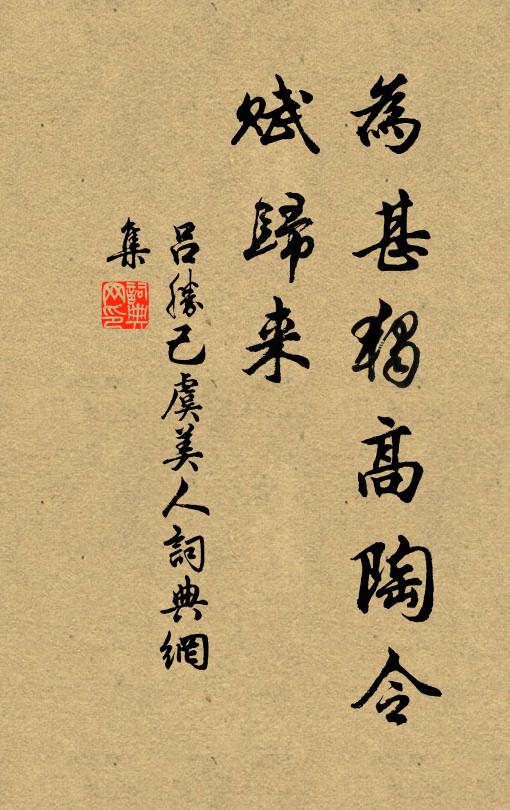 為甚獨高陶令
賦歸来
吕勝己虞美人詞典網
集
詞典
网印